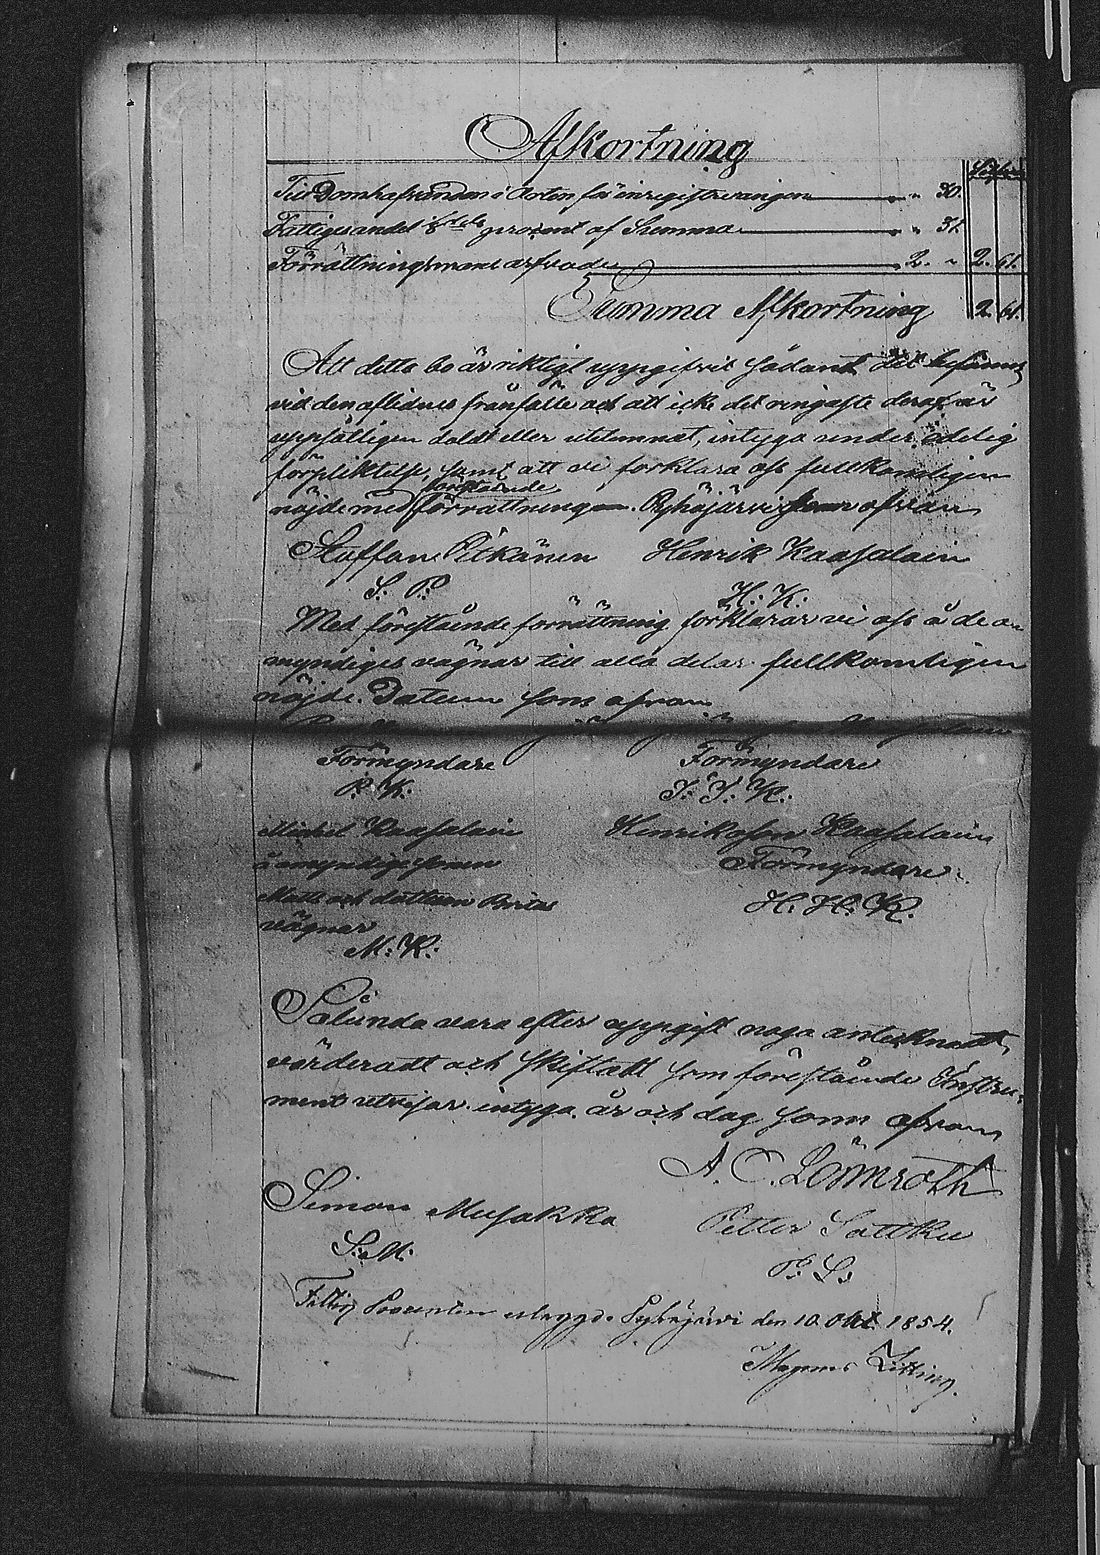 Afkortning
Till Domhafvanden i Orten för inregistreringen " 30.
Fattiges andel 1/8 dels procent af Summa " 31.
Förrättningsmans arfvode 2. " 2. 61.
Summa Afkortning 2 61.
Att detta bo är riktigt uppgifvit sådant det befanns
vid den aflidnes frånfälle och att icke det ringaste deraf är
uppsåtligen doldt eller utelemnat, intyga under edelig
förpliktelse, samt att vi forklara oss fullkomligen
förestående
nöjde med förrättningen. Pyhäjärvi som ofvan
Staffan Pitkänen Henrik Kaasalain
S: P: H: K:
Med förestående förrättning förklarar vi oss å de o-
myndiges vägnar till alla delar fullkomligen
nöjde. Datum som ofvan
Förmyndare Förmyndare
P: K: J: J: K:
Michel Kaasalain Henriksson Kaasalain
å omyndige sonen Förmyndare
Matts och dottren Britas H: H: K.
vägnar
M: K:
Sålunda vara efter uppgift noga antecknadt,
värderadt och skiftadt som förestående Instru-
ment utvisar intyga år och dag som ofvan
A. C. Lönnroth
Simon Musakka Petter Lattku
S: M: P: L:
Fattig Procenten erlaggd. Pyhäjärvi den 10 Okt. 1854.
Magnus Zitting.